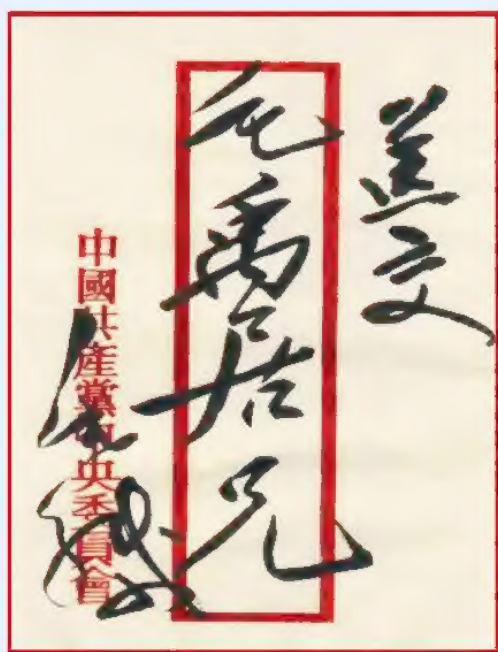 盖交
毛禹居兄
中國共產黨中央委員會